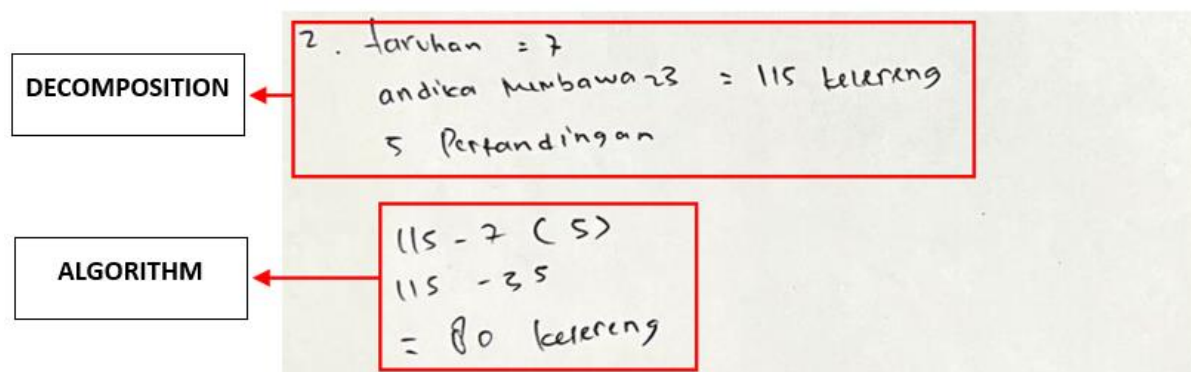 DECOMPOSITION
2. taruhan = 7
andika membawa 23 = 115 kelereng
5 Pertandingan
ALGORITHM
115 - 7 (5)
115 - 35
= 80 kelereng